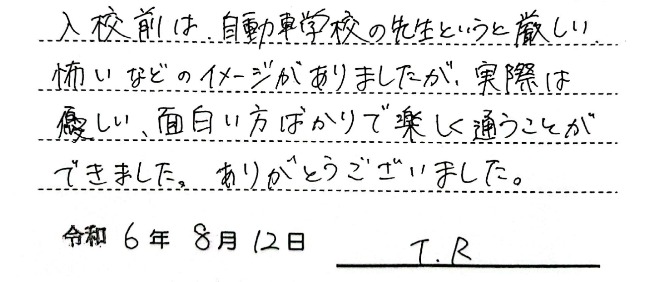 入校前は、自動車学校の先生というと厳しい、
怖いなどのイメージがありましたが、実際は
優しい、面白い方ばかりで楽しく通うことが
できました。ありがとうございました。
令和 6年 8月 12日 T.R